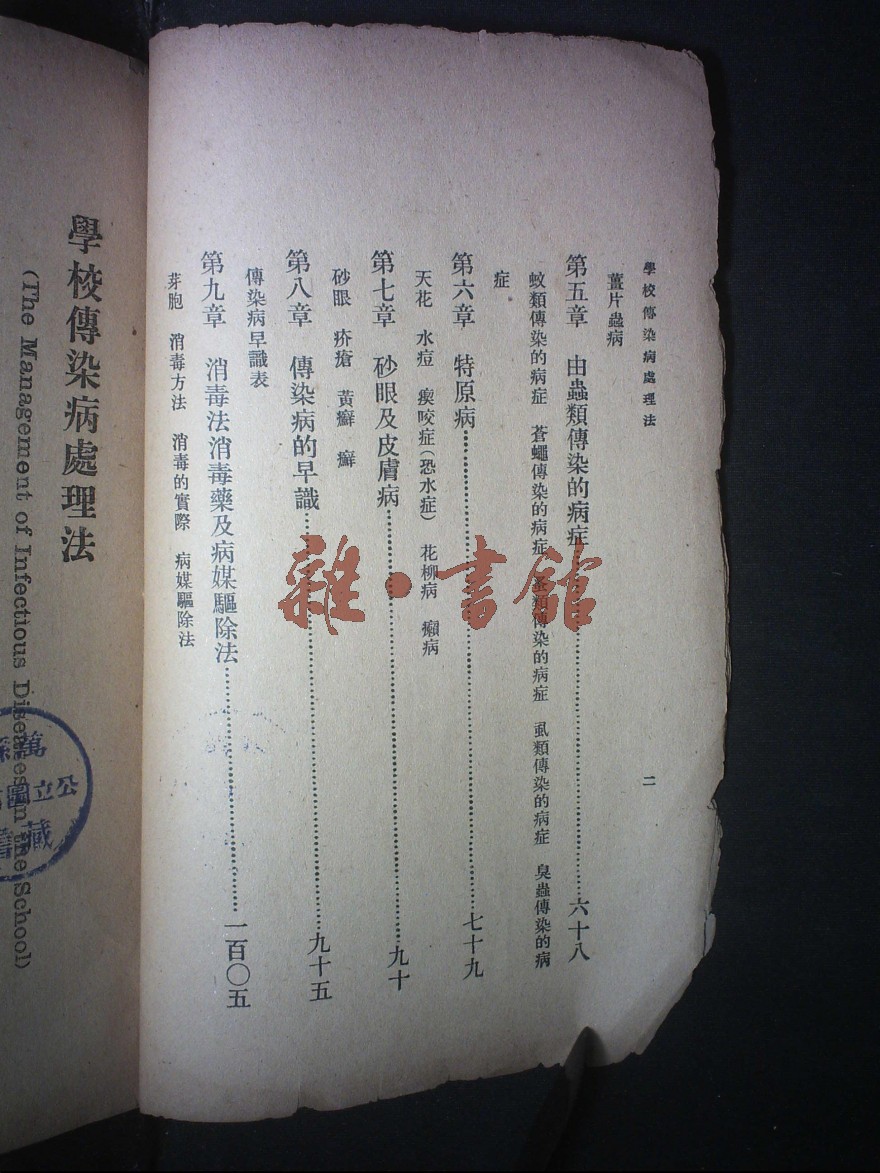 學校傳染病處理法
二
薑片蟲病
第五章　由蟲類傳染的病症……六十八
蚊類傳染的病症　蒼蠅傳染的病症　蚤類傳染的病症　虱類傳染的病症　臭蟲傳染的病
症
第六章　特原病……七十九
天花　水痘　瘈咬症(恐水症)　花柳病　癩病
第七章　砂眼及皮膚病……九十
砂眼　疥瘡　黃癬　癬
第八章　傳染病的早識……九十五
傳染病早識表
第九章　消毒法消毒藥及病媒驅除法……一百〇五
芽胞　消毒方法　消毒的實際　病媒驅除法
雜·書館
學校傳染病處理法
(The Management of Infectious Diseases in the School)
萬縣
公立圖
藏書